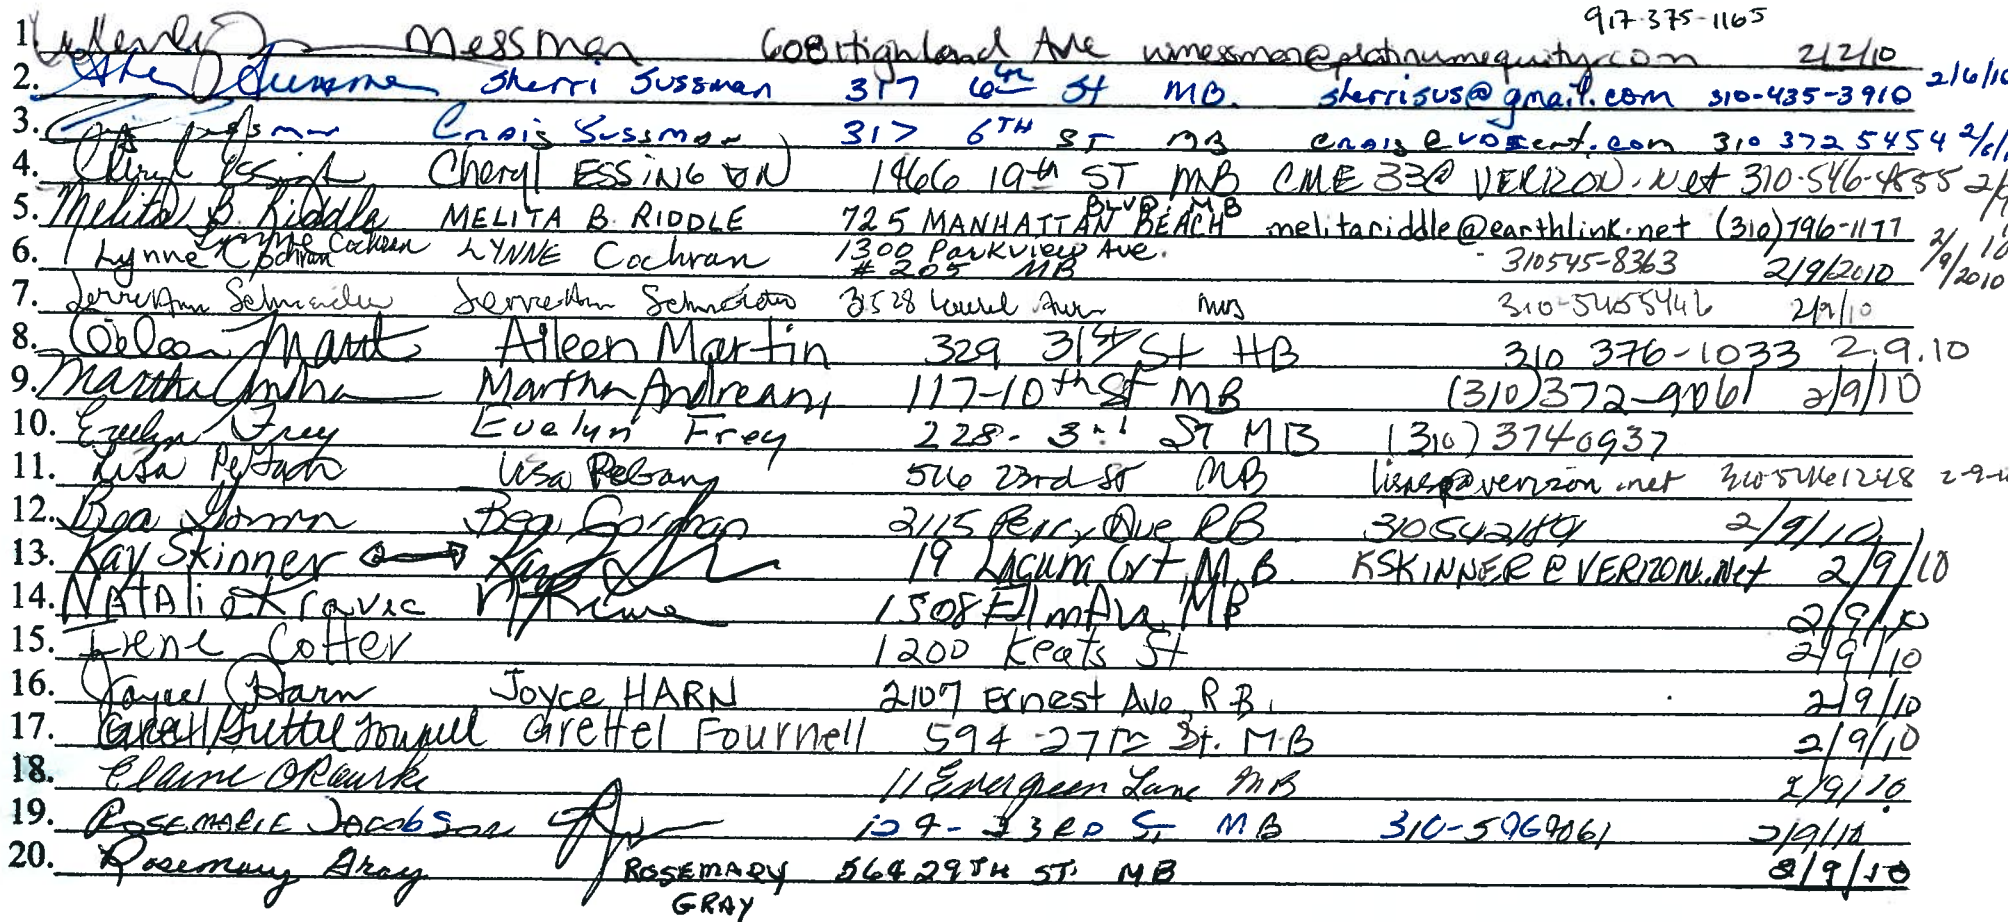 917-375-1165
1. Messman 608 Highland Ave wmessman@platinumequity.com 2/2/10
2. Sherri Sussman 317 6th St MB. sherrisus@gmail.com 310-435-3910 2/6/10
3. Craig Sussman 317 6TH ST MB 310 372 5454
4. Cheryl Essington Cheryl ESSINGTON 1466 19th ST MB CME33@VERIZON.net 310-546-4855
5. Melita B. Riddle MELITA B RIDDLE 725 MANHATTAN BEACH BLVD. MB melitariddle@earthlink.net (310)796-1177
6. Lynne Cochran Lynne Cochran LYNNE Cochran 1300 Parkview Ave. #205 MB 310545-8363 2/9/2010 2/9/2010
7. JerreAnn Schneider JerreAnn Schneider 3528 Laurel Ave MB 310-5455446 2/9/10
8. Aileen Martin Aileen Martin 329 31st St HB 310 376-1033 2.9.10
9. Martha Andreani 117-10th St MB (310)372-9061 2/9/10
10. Evelyn Frey Evelyn Frey 228- 3rd ST MB (310) 3740937
11. Lisa Lisa 23rd St MB 2-9-
12. Bea Gorman Bea Gorman 2115 Perry Ave RB 2/9/10
13. Kay Skinner 19 Laguna Crt M.B. KSKINNER@VERIZON.Net 2/9/10
14. NAtAlie Kravec 1508 Elm Av. MB 2/9/10
15. Irene Cotter 1200 Keats St 2/9/10
16. Joyce Harn Joyce HARN 2107 Ernest Ave. R.B. 2/9/10
17. Grettel Fournell Grettel Fournell 594 27th St. M.B 2/9/10
18. Elaine O'Rourke 11 Evergreen Lane MB 2/9/10
19. ROSEMARIE JACOBSON 33RD ST MB 2/9/10
20. Rosemary Gray ROSEMARY 564 29TH ST. MB 2/9/10
GRAY